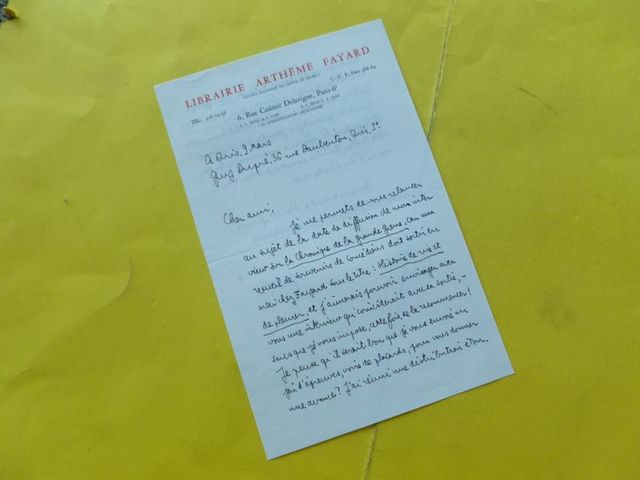 LIBRAIRIE ARTHÈME FAYARD
C. C. P. Paris
TEL.
6, Rue Casimir Delavigne, Paris-6e
A Paris, 9 mars
Guy Dupré, 36 rue Daubenton, Paris, 5e.
Cher ami,
Je me permets de vous relancer
au sujet de la date de diffusion de mon inter
view sur la Chronique de la grande guerre, car mon
recueil de souvenirs de comédiens doit sortir en
mai chez Fayard sous le titre : Histoire de rire et
de pleurer, et j'aimerais pouvoir envisager avec
vous une interview qui coïnciderait avec sa sortie, -
sans que je vous impose, cette fois, de la recommencer !
Je pense qu'il serait bon que je vous envoie un
jeu d'épreuves, voire de placards, pour vous donner
une avance ? J'ai réuni une distribution